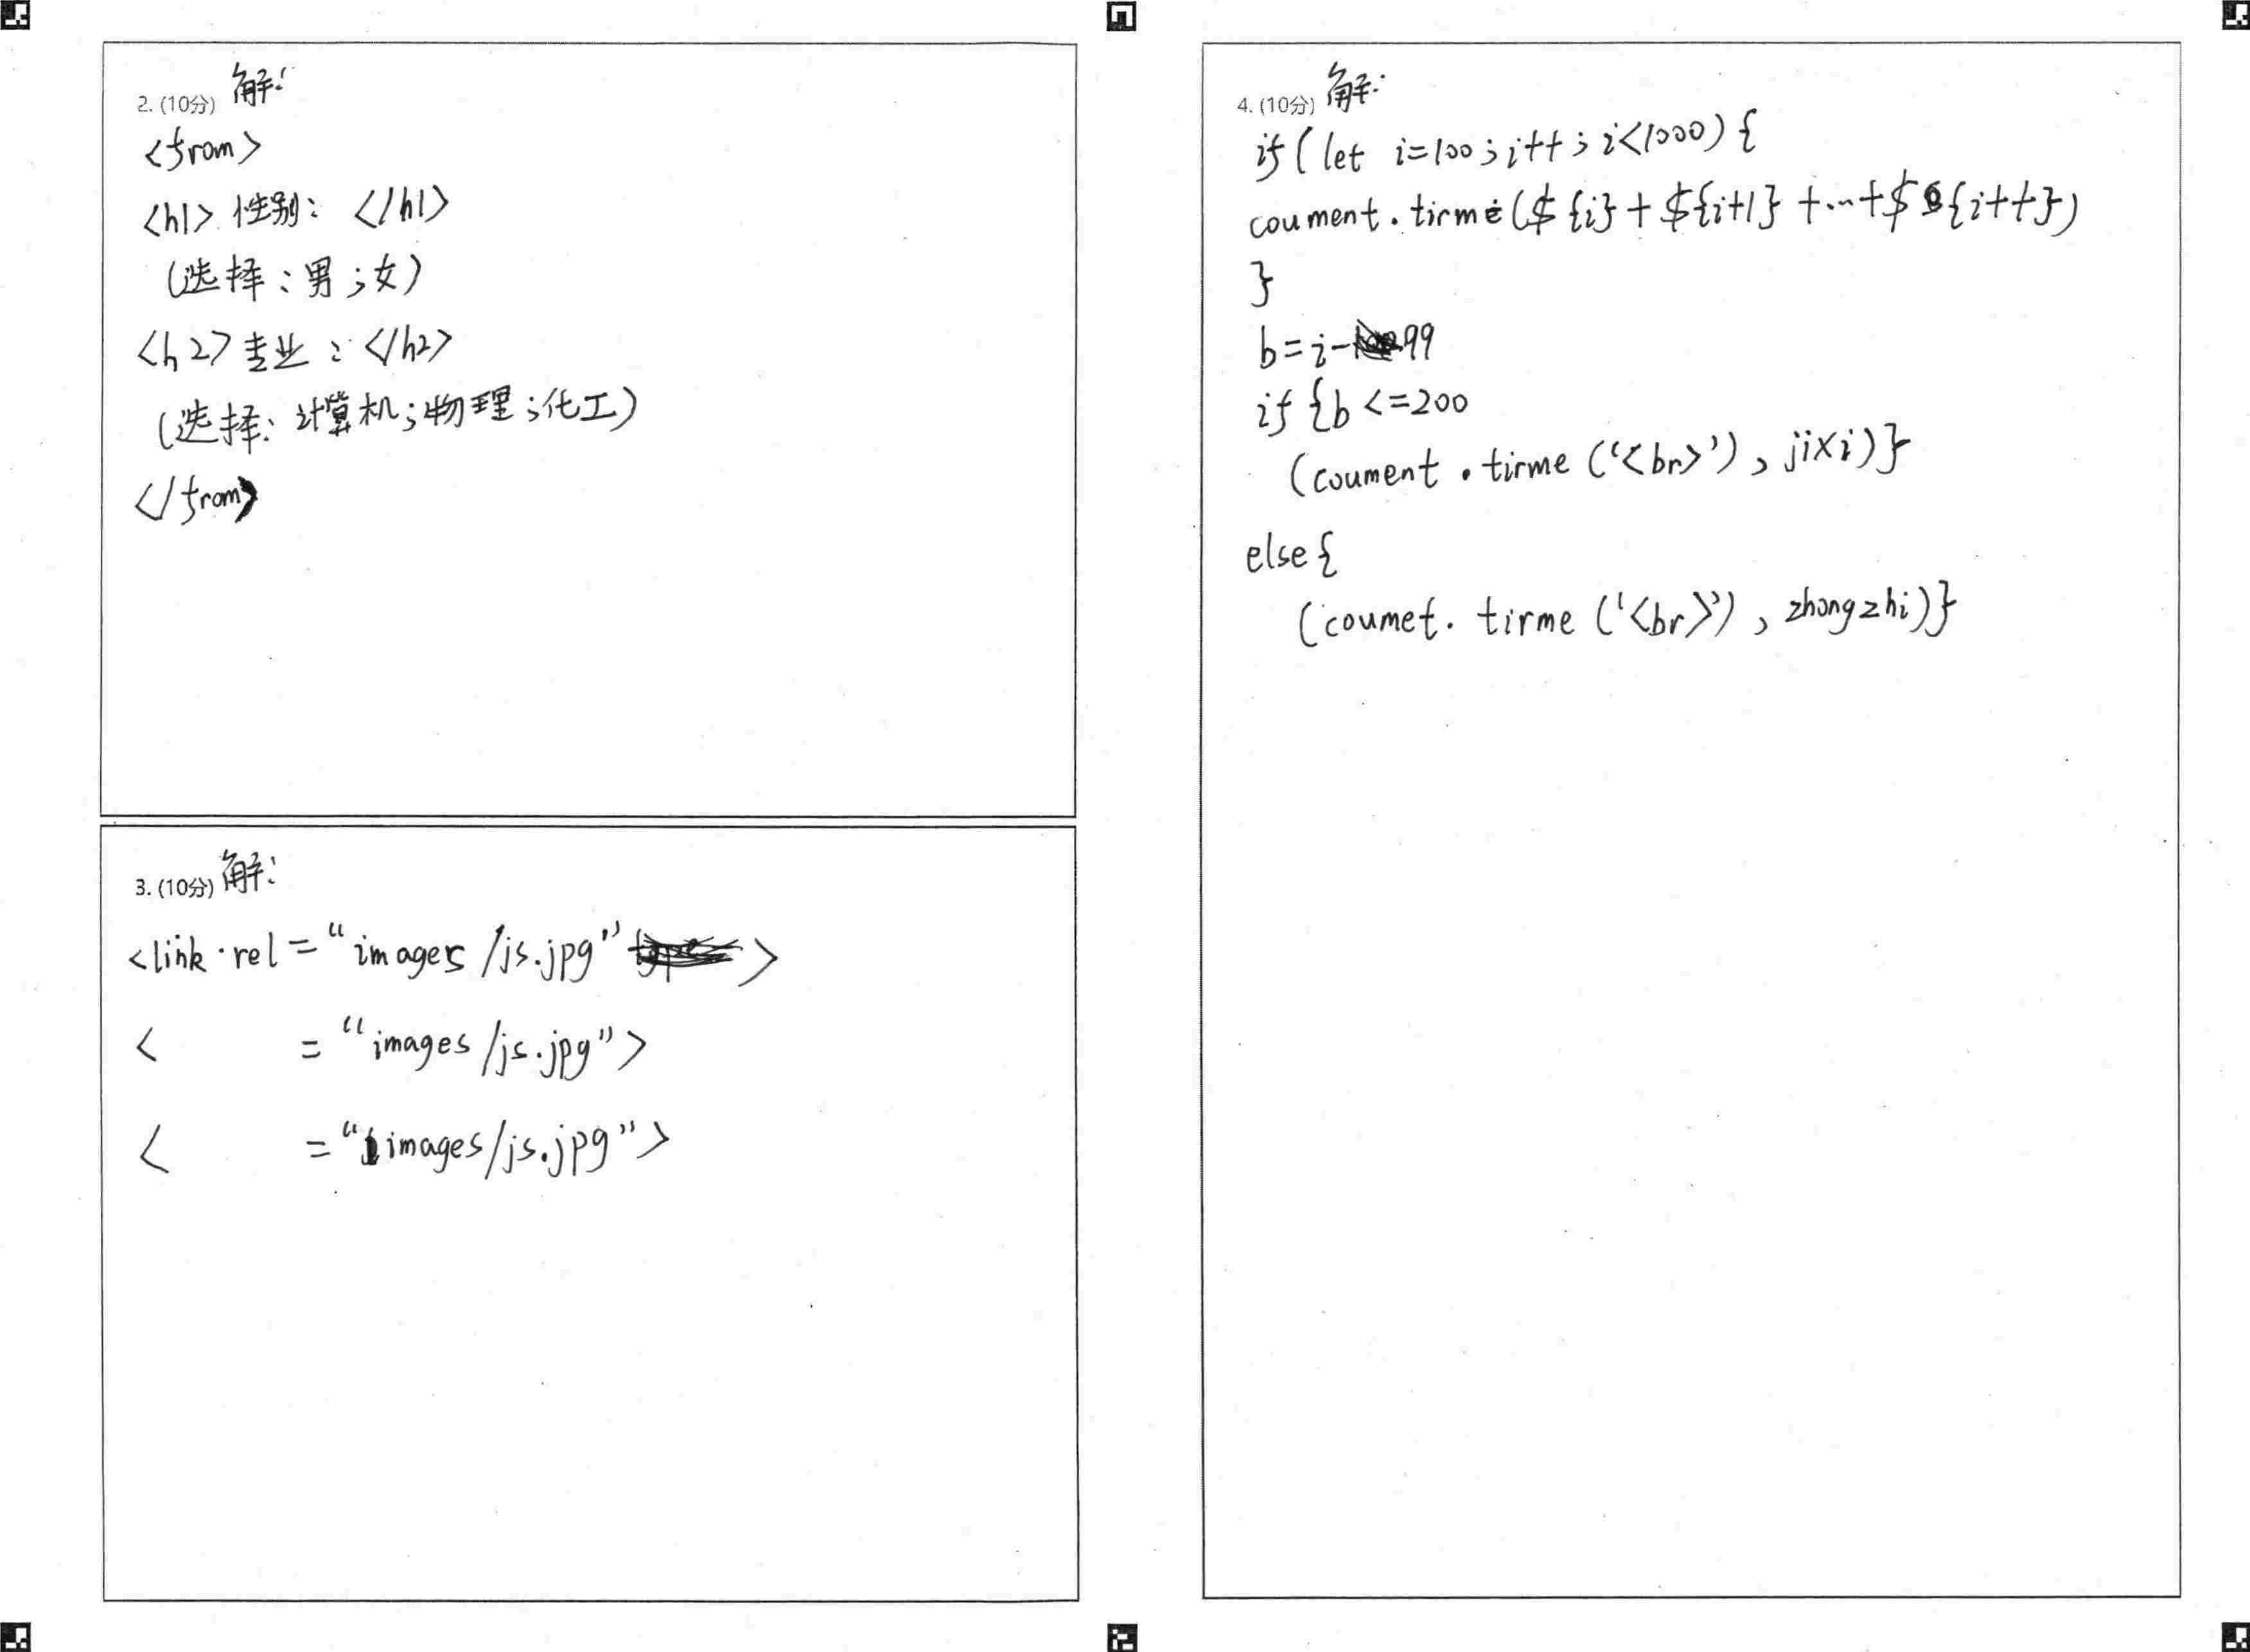 2. (10分) 解:
<from>
<h1> 性别: </h1>
(选择:男;女)
<h2>专业:</h2>
(选择:计算机;物理;化工)
</from>
3. (10分) 解:
<link rel="images/js.jpg" >
< ="images/js.jpg">
< ="images/js.jpg">
4. (10分) 解:
if(let i=100;i++;i<1000){
coument.tirme(${i}+${i+1}+…+${i++})
}
b=i-99
if{b<=200
(coument.tirme('<br>'),jixi)}
else{
(coumet.tirme('<br>'),zhongzhi)}